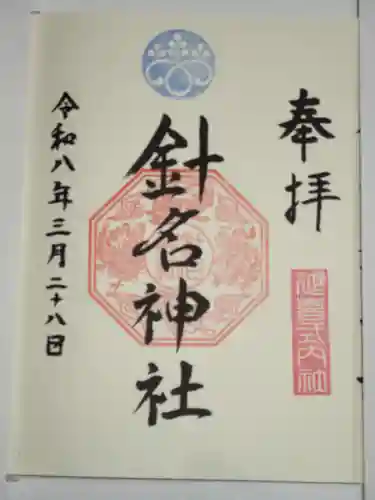 奉拝
延喜式内社
針名神社
令和八年三月二十八日